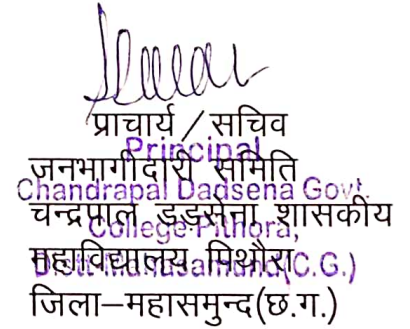 प्राचार्य / सचिव
Principal
जनभागीदारी समिति
Chandrapal Dadsena Govt.
चन्द्रपाल डड़सेना शासकीय
College Pithora,
महाविद्यालय पिथौरा
Distt. Mahasamund (C.G.)
जिला–महासमुन्द(छ.ग.)